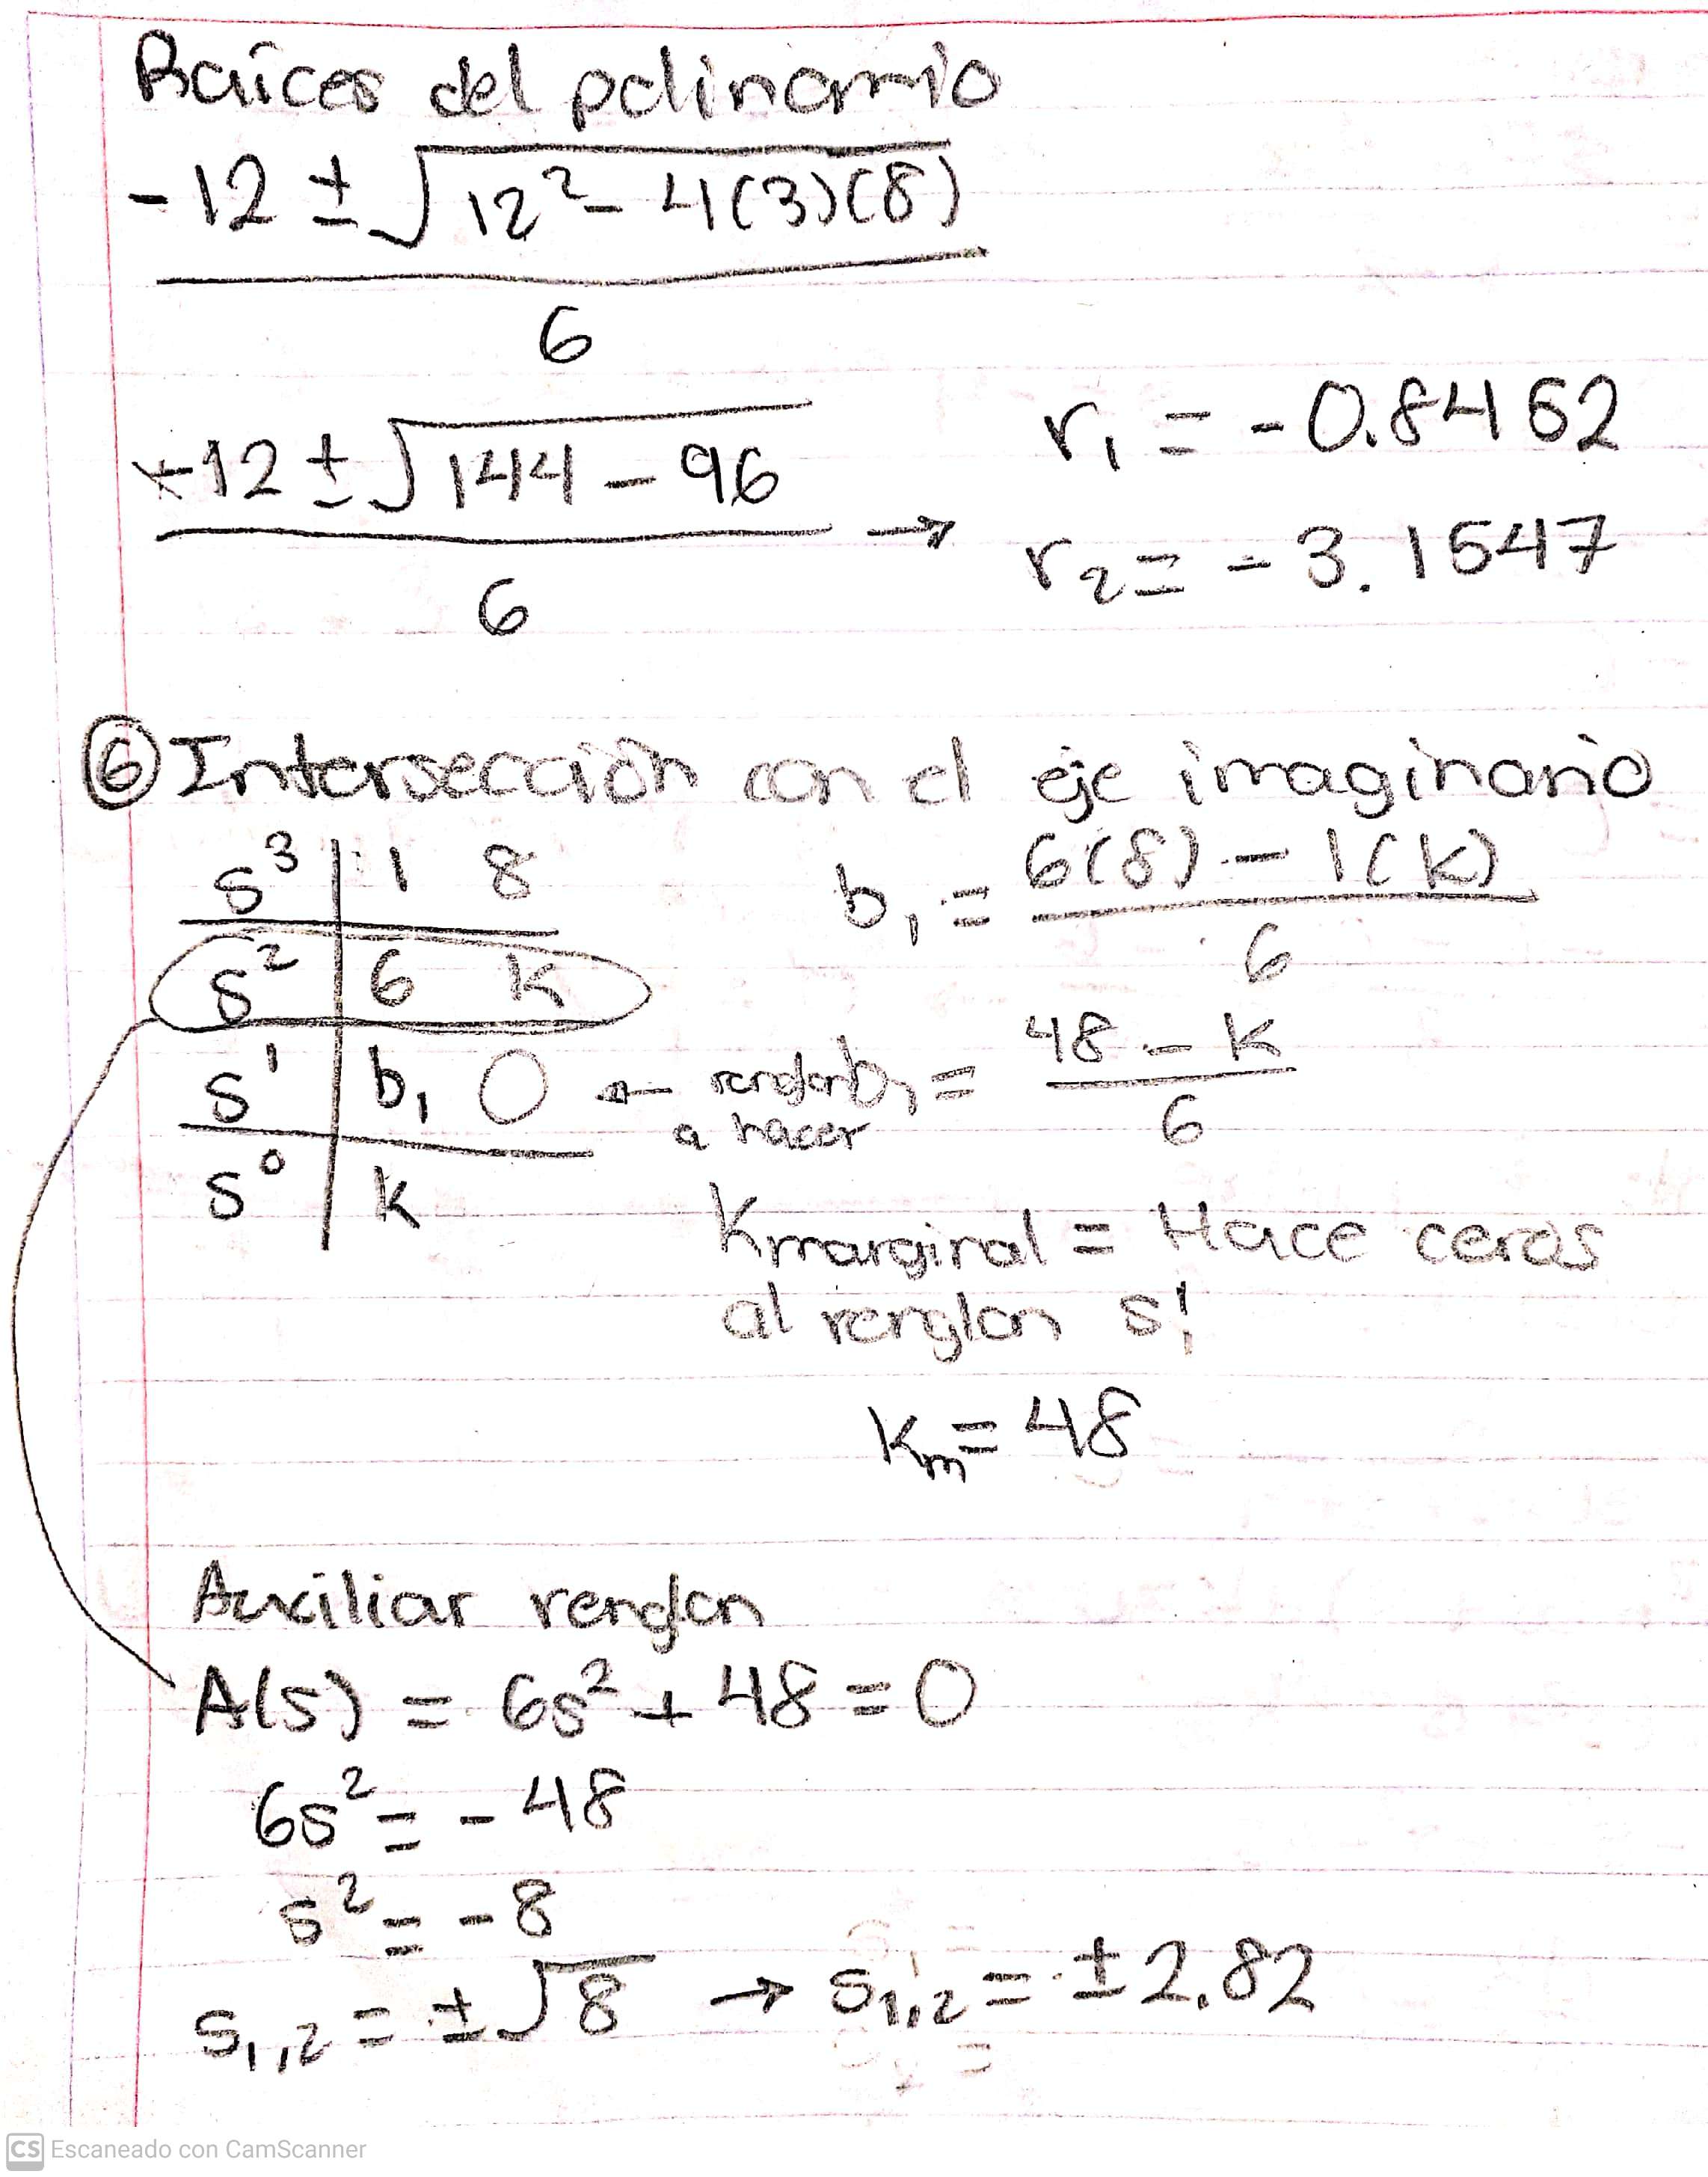 Raíces del polinomio
-12 ± √12² - 4(3)(8)
6
-12 ± √144 - 96
6
→ r₁ = -0.8452
r₂ = -3.1547
⑥ Intersección con el eje imaginario
s³ | 1 8
s² | 6 K
s¹ | b₁ 0 ← renglon a hacer
s⁰ | k
b₁ = 6(8) - 1(k)
6
b₁ = 48 - K
6
Kmarginal = Hace ceros
al renglon s¹
Km = 48
Auxiliar renglon
A(s) = 6s² + 48 = 0
6s² = -48
s² = -8
s₁,₂ = ±√8 → s₁,₂ = ±2.82
CS Escaneado con CamScanner